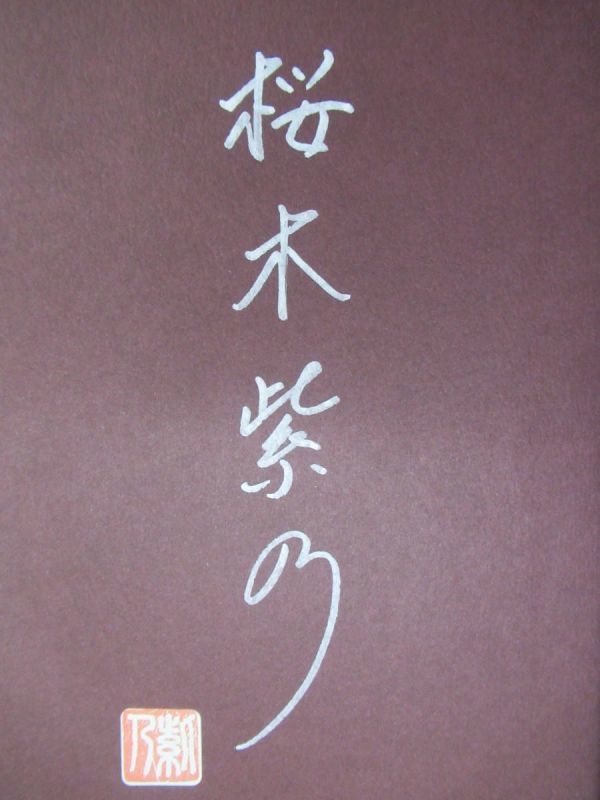 桜木紫乃
紫乃